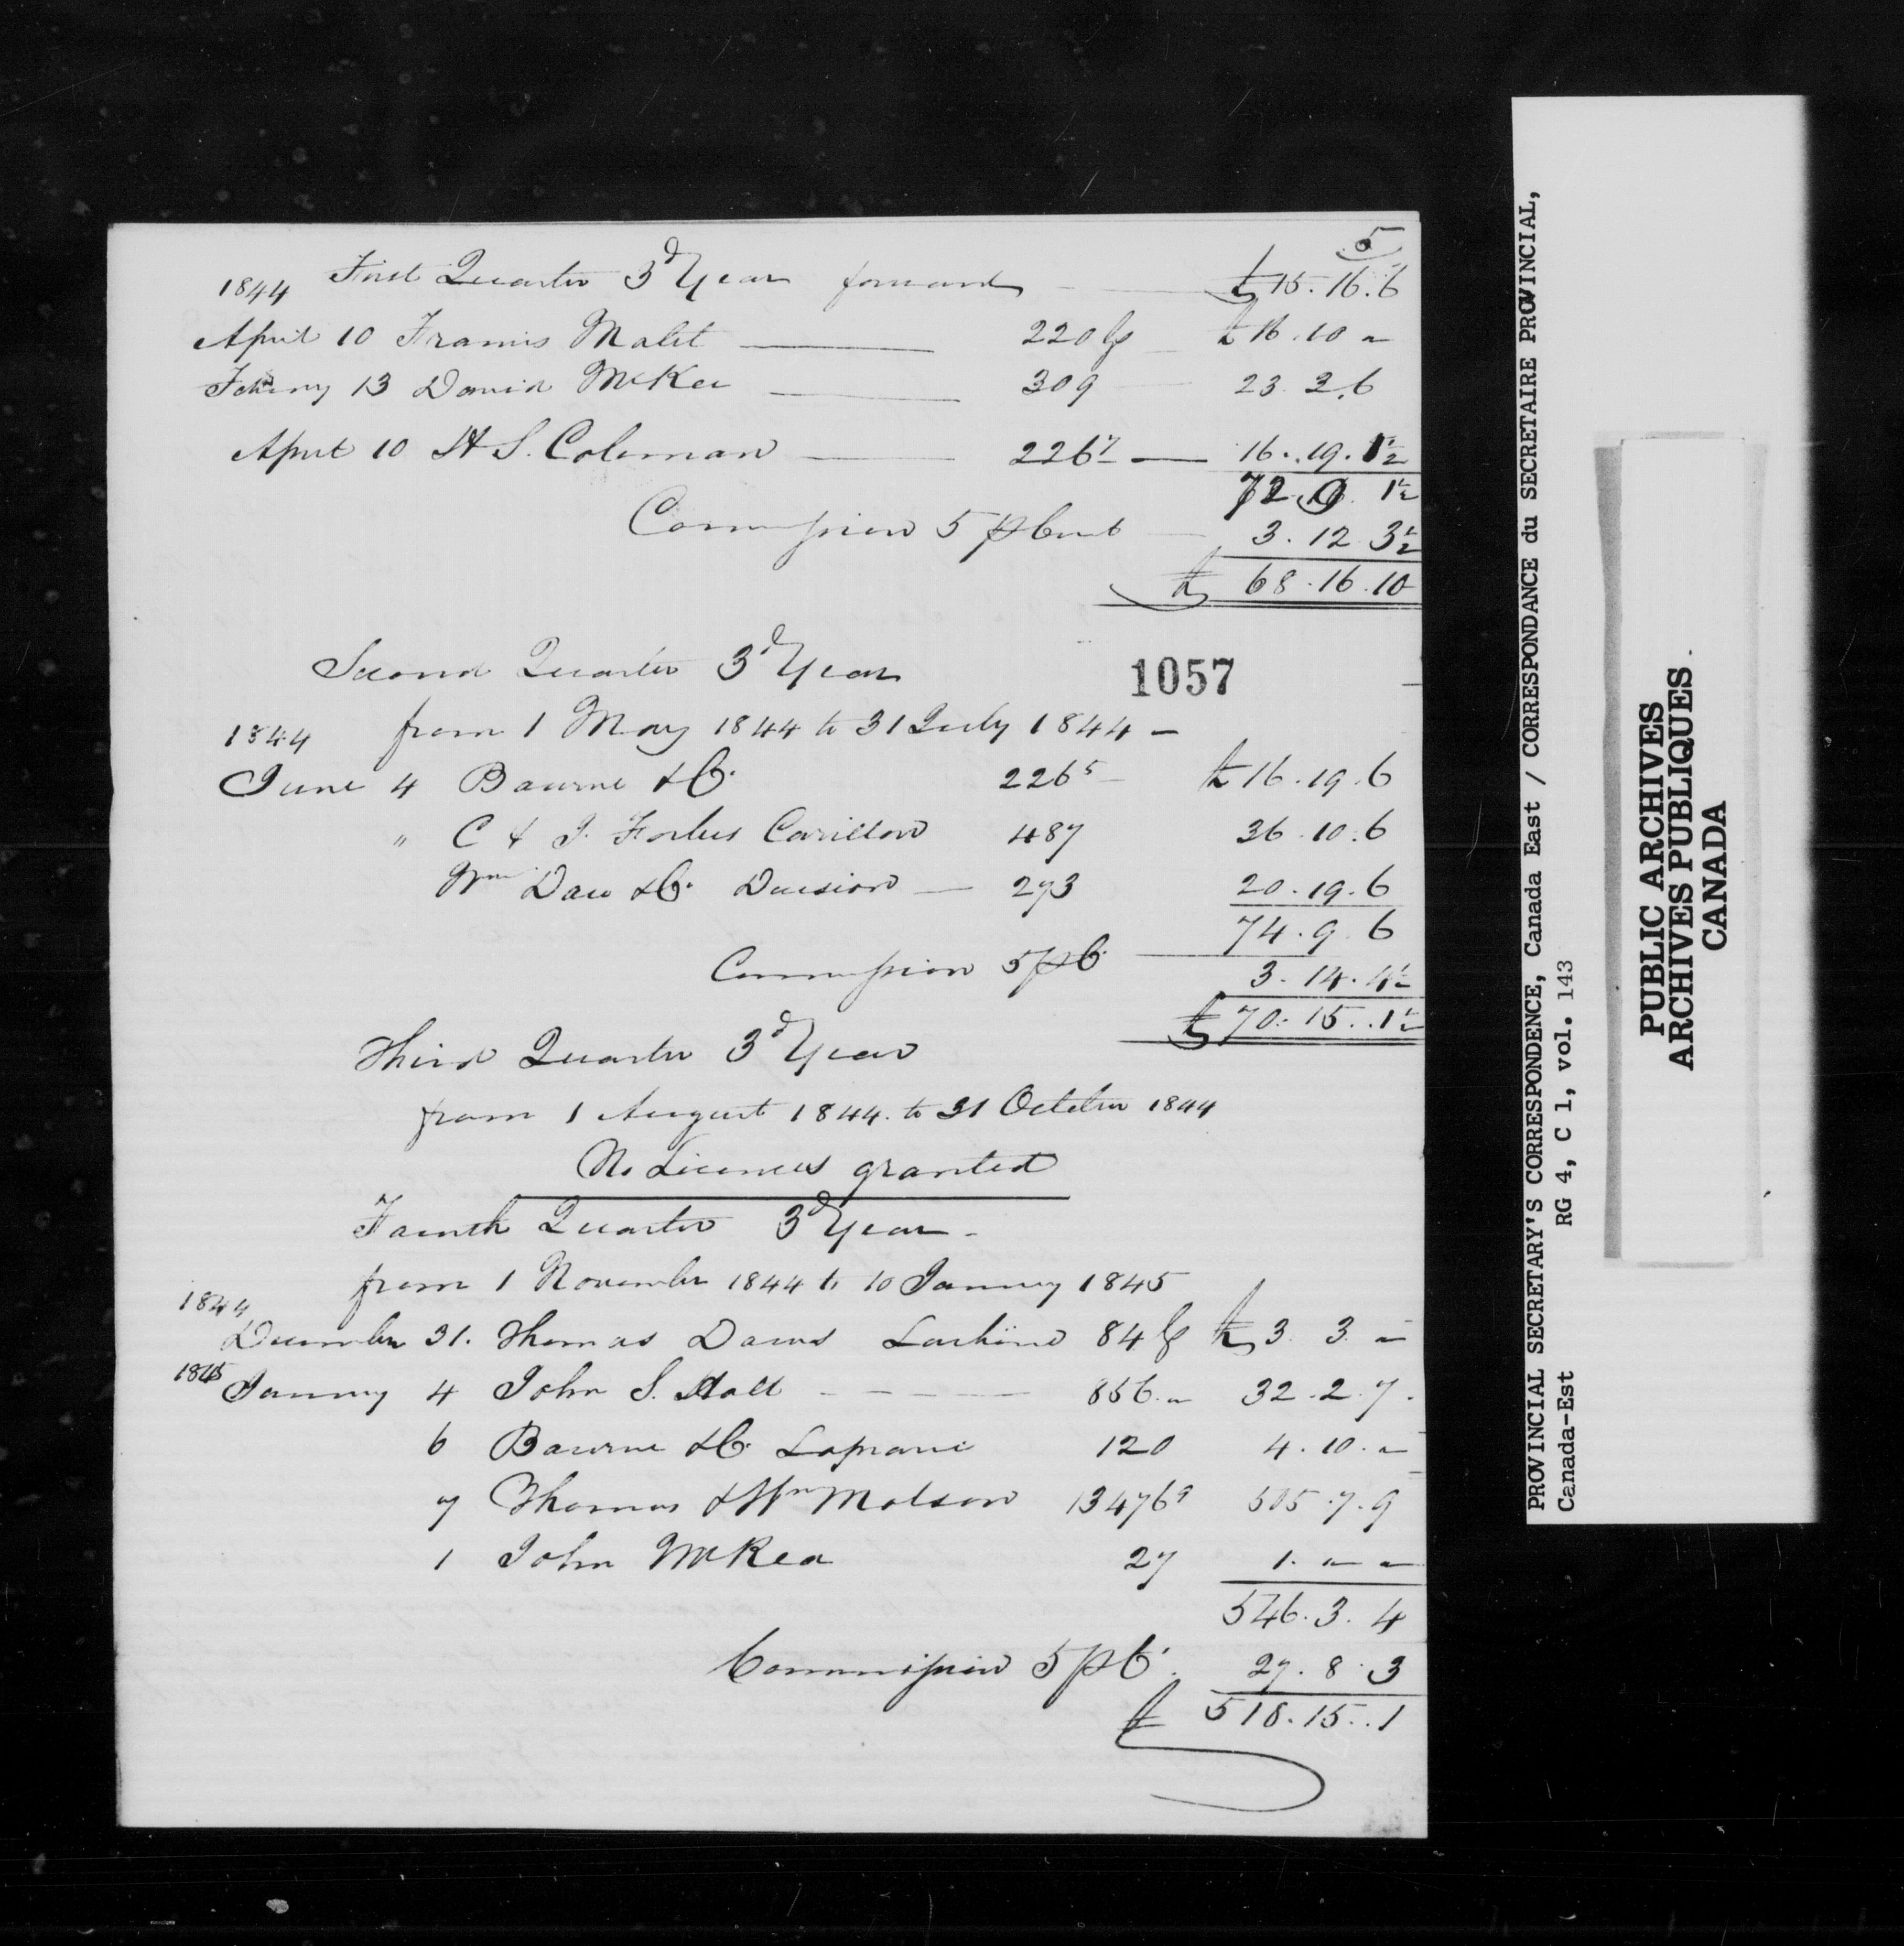 5
1844 First Quarter 3d Year forward £15.16.6
April 10 Francis Malet 220 lp £16.10 "
13 David McKee 309 23.2.6
April 10 H S. Coleman 226 7 16.19.1½
72.9.1½
Commission 5 p Cent 3.12.3½
£ 68.16.10
Second Quarter 3d Year
1057
1844 from 1 May 1844 to 31 July 1844 -
June 4 Bourne & Co. 226 5 £16.19.6
" C & J. Forbes Carillon 487 36.10.6
Wm Dow & Co. 273 20.19.6
74.9.6
Commission 5 p C. 3.14.4½
£ 70.15.1½
Third Quarter 3d Year
from 1 August 1844 to 31 October 1844
No Licences granted
Fourth Quarter 3d Year -
from 1 November 1844 to 10 January 1845
1844
December 31. Thomas Dawes Lachine 84 £ 3.3. "
1845
January 4 John S. Hall 856. " 32.2.7.
6 Bourne & Co. Laprarie 120 4.10. "
7 Thomas & Wm Molson 13476 9 505.7.9
1 John McKea 27 1. " "
546.3.4
Commission 5 p C. 27.8.3
£ 518.15..1
PROVINCIAL SECRETARY'S CORRESPONDENCE, Canada East / CORRESPONDANCE du SECRETAIRE PROVINCIAL,
Canada-Est RG 4, C 1, vol. 143
PUBLIC ARCHIVES
ARCHIVES PUBLIQUES
CANADA